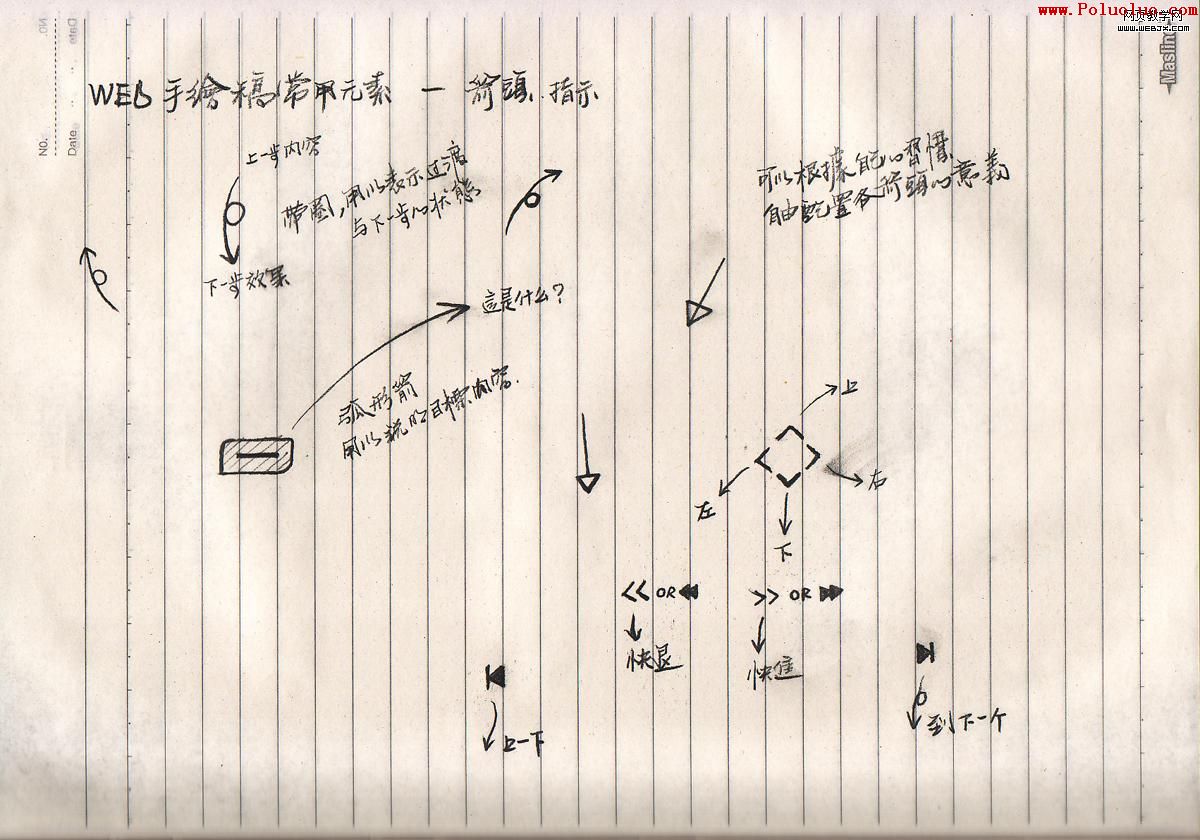 www.Poluoluo.com
网页教学网
www.webjx.com
Maslinc
NO.
Date
NO.
Date
WEB手繪稿常用元素 — 箭頭.指示
上一步内容
帶圈,用以表示过渡
与下一步的状態
下一步效果
可以根據自己的習慣
自由配置各箭頭的意義
這是什么?
弧形箭
用以說明目標内容.
上
右
左
下
<< OR
>> OR
快退
快進
上一下
到下一个